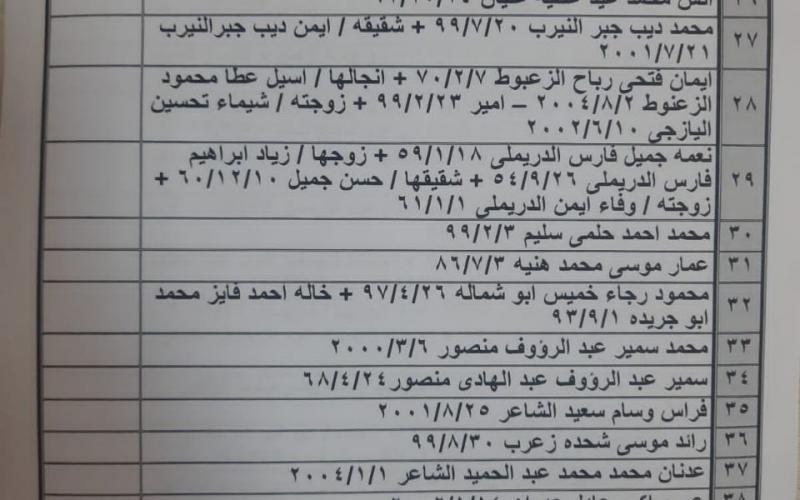 ٢٧ محمد ديب جبر النيرب ٩٩/٧/٢٠ + شقيقه / ايمن ديب جبرالنيرب
٢٠٠١/٧/٢١
ايمان فتحى رباح الزعبوط ٧٠/٢/٧ + انجالها / اسيل عطا محمود
٢٨ الزعنوط ٢٠٠٤/٨/٢ – امير ٩٩/٢/٢٣ + زوجته / شيماء تحسين
اليازجى ٢٠٠٢/٦/١٠
نعمه جميل فارس الدريملى ٥٩/١/١٨ + زوجها / زياد ابراهيم
٢٩ فارس الدريملى ٥٤/٩/٢٦ + شقيقها / حسن جميل ٦٠/١٢/١٠ +
زوجته / وفاء ايمن الدريملى ٦١/١/١
٣٠ محمد احمد حلمى سليم ٩٩/٢/٣
٣١ عمار موسى محمد هنيه ٨٦/٧/٣
٣٢ محمود رجاء خميس ابو شماله ٩٧/٤/٢٦ + خاله احمد فايز محمد
ابو جريده ٩٣/٩/١
٣٣ محمد سمير عبد الرؤوف منصور ٢٠٠٠/٣/٦
٣٤ سمير عبد الرؤوف عبد الهادى منصور ٦٨/٤/٢٤
٣٥ فراس وسام سعيد الشاعر ٢٠٠١/٨/٢٥
٣٦ رائد موسى شحده زعرب ٩٩/٨/٣٠
٣٧ عدنان محمد محمد عبد الحميد الشاعر ٢٠٠٤/١/١